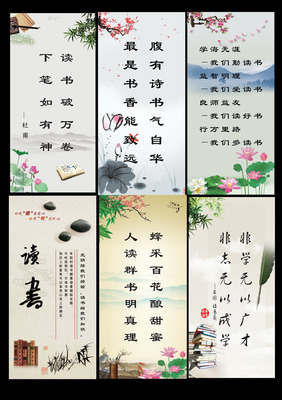 读书破万卷
下笔如有神
—杜甫
腹有诗书气自华
最是书香能致远
学海无涯
—我们勤读书
益智明理
—我们爱读书
良师益友
—我们读好书
行万里路
—我们多读书
读书
蜂采百花酿甜蜜
人读群书明真理
非学无以广才
非志无以成学